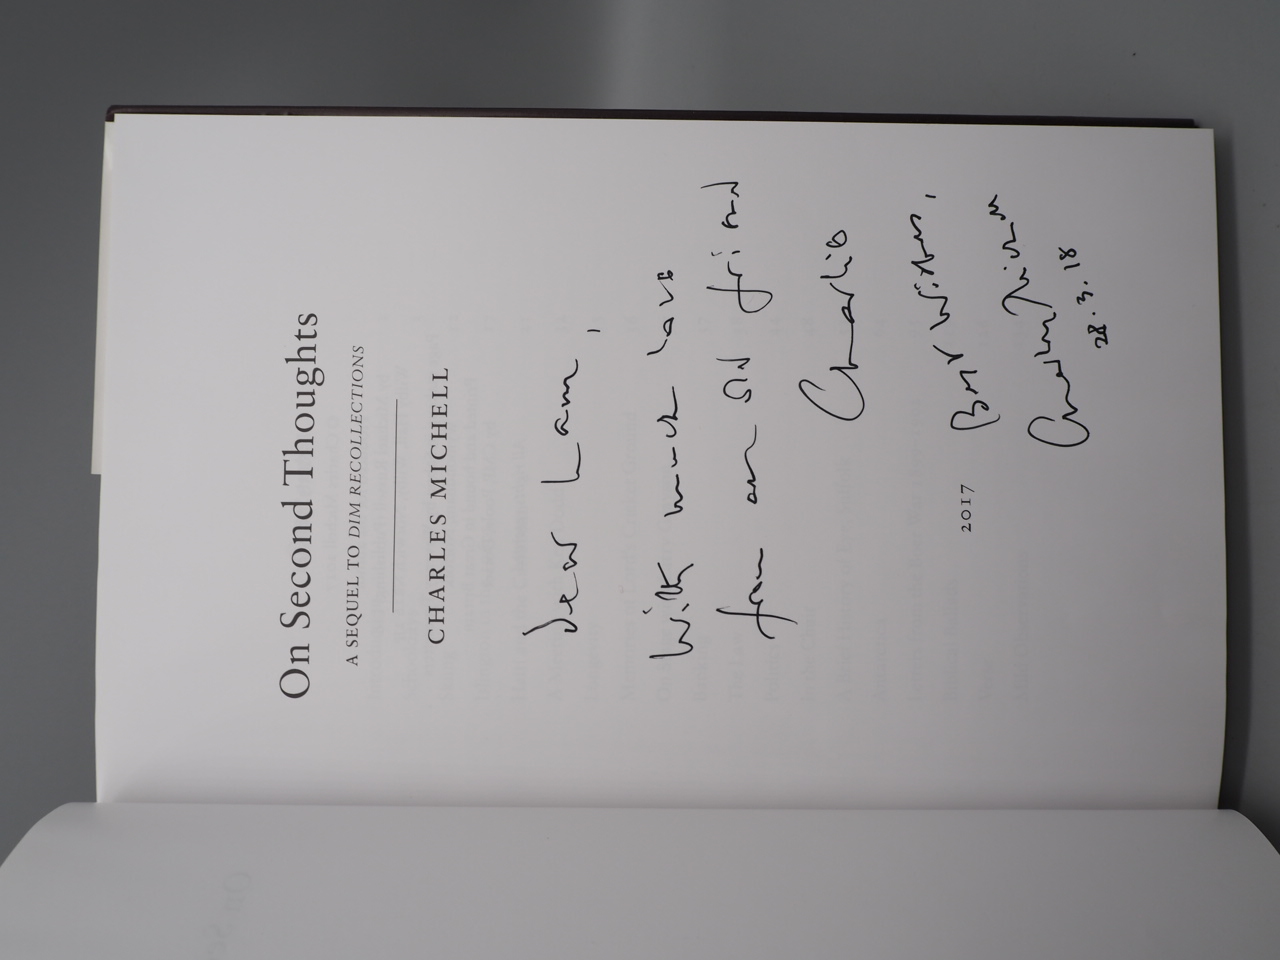 On Second Thoughts
A SEQUEL TO DIM RECOLLECTIONS
CHARLES MICHELL
Dear
With much love
from an old friend
Charlie
Best Wishes,
2017
28.3.18